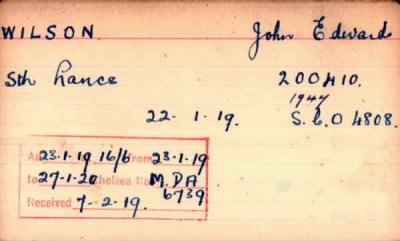 WILSON. John Edward
Sth Lancs 200410.
1947
22. 1. 19. S.C.O 4808.
23.1.19 16/6 from 23.1.19
to 27-1-20 Chelsea No M.DA
6739
Received 7-2-19.